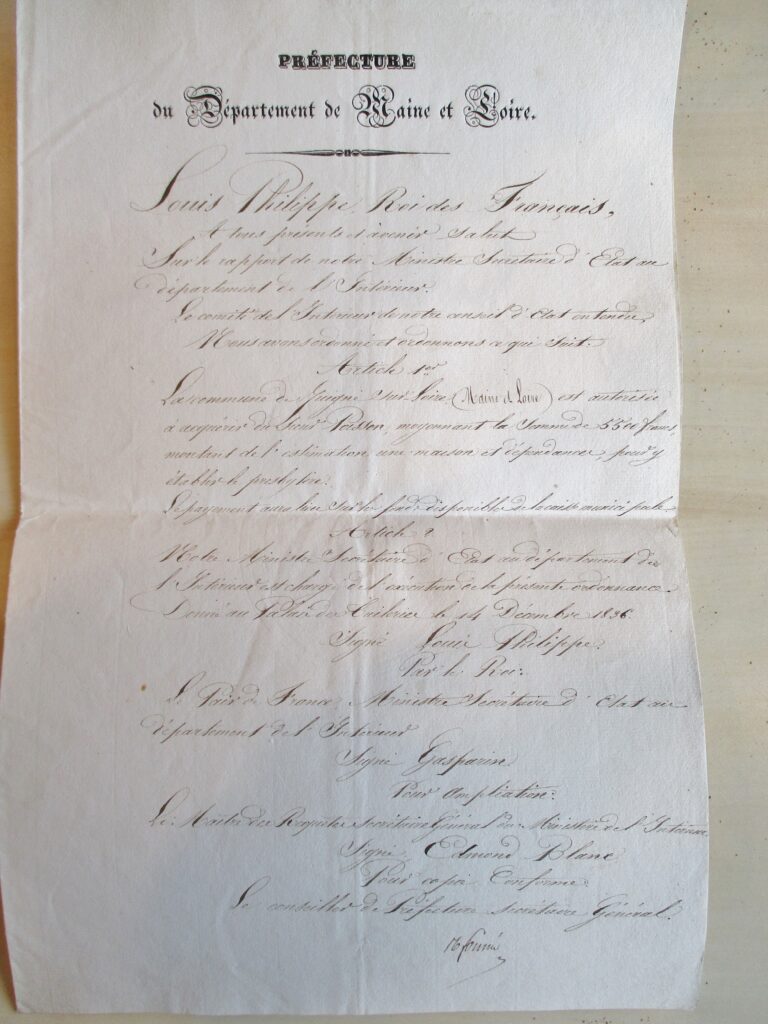 PRÉFECTURE
du Département de Maine et Loire.
Louis Philippe, Roi des Français,
A tous présents et à venir Salut
Sur le rapport de notre Ministre Secrétaire d'Etat au
département de l'Intérieur.
Le comité de l'Intérieur de notre conseil d'Etat entendu,
Nous avons ordonné et ordonnons ce qui suit.
Article 1er
La commune de Juigné sur Loire (Maine et Loire) est autorisée
à acquérir du Sieur Poisson, moyennant la Somme de francs,
montant de l'estimation, une maison et dépendances, pour y
établir le presbytère.
Le payement aura lieu Sur les fonds disponibles de la caisse municipale
Article 2
Notre Ministre Secrétaire d'Etat au département de
l'Intérieur est chargé de l'exécution de la présente ordonnance.
Donné au Palais des Tuileries le 14 Décembre 1836
Signé Louis Philippe.
Par le Roi:
Le Pair de France, Ministre Secrétaire d'Etat au
département de l'Intérieur
Signé Gasparin
Pour ampliation:
Le Maître des Requêtes Secrétaire Général du Ministère de l'Intérieur
Signé Edmond Blanc
Pour copie Conforme
Le conseiller de Préfecture Secrétaire Général.